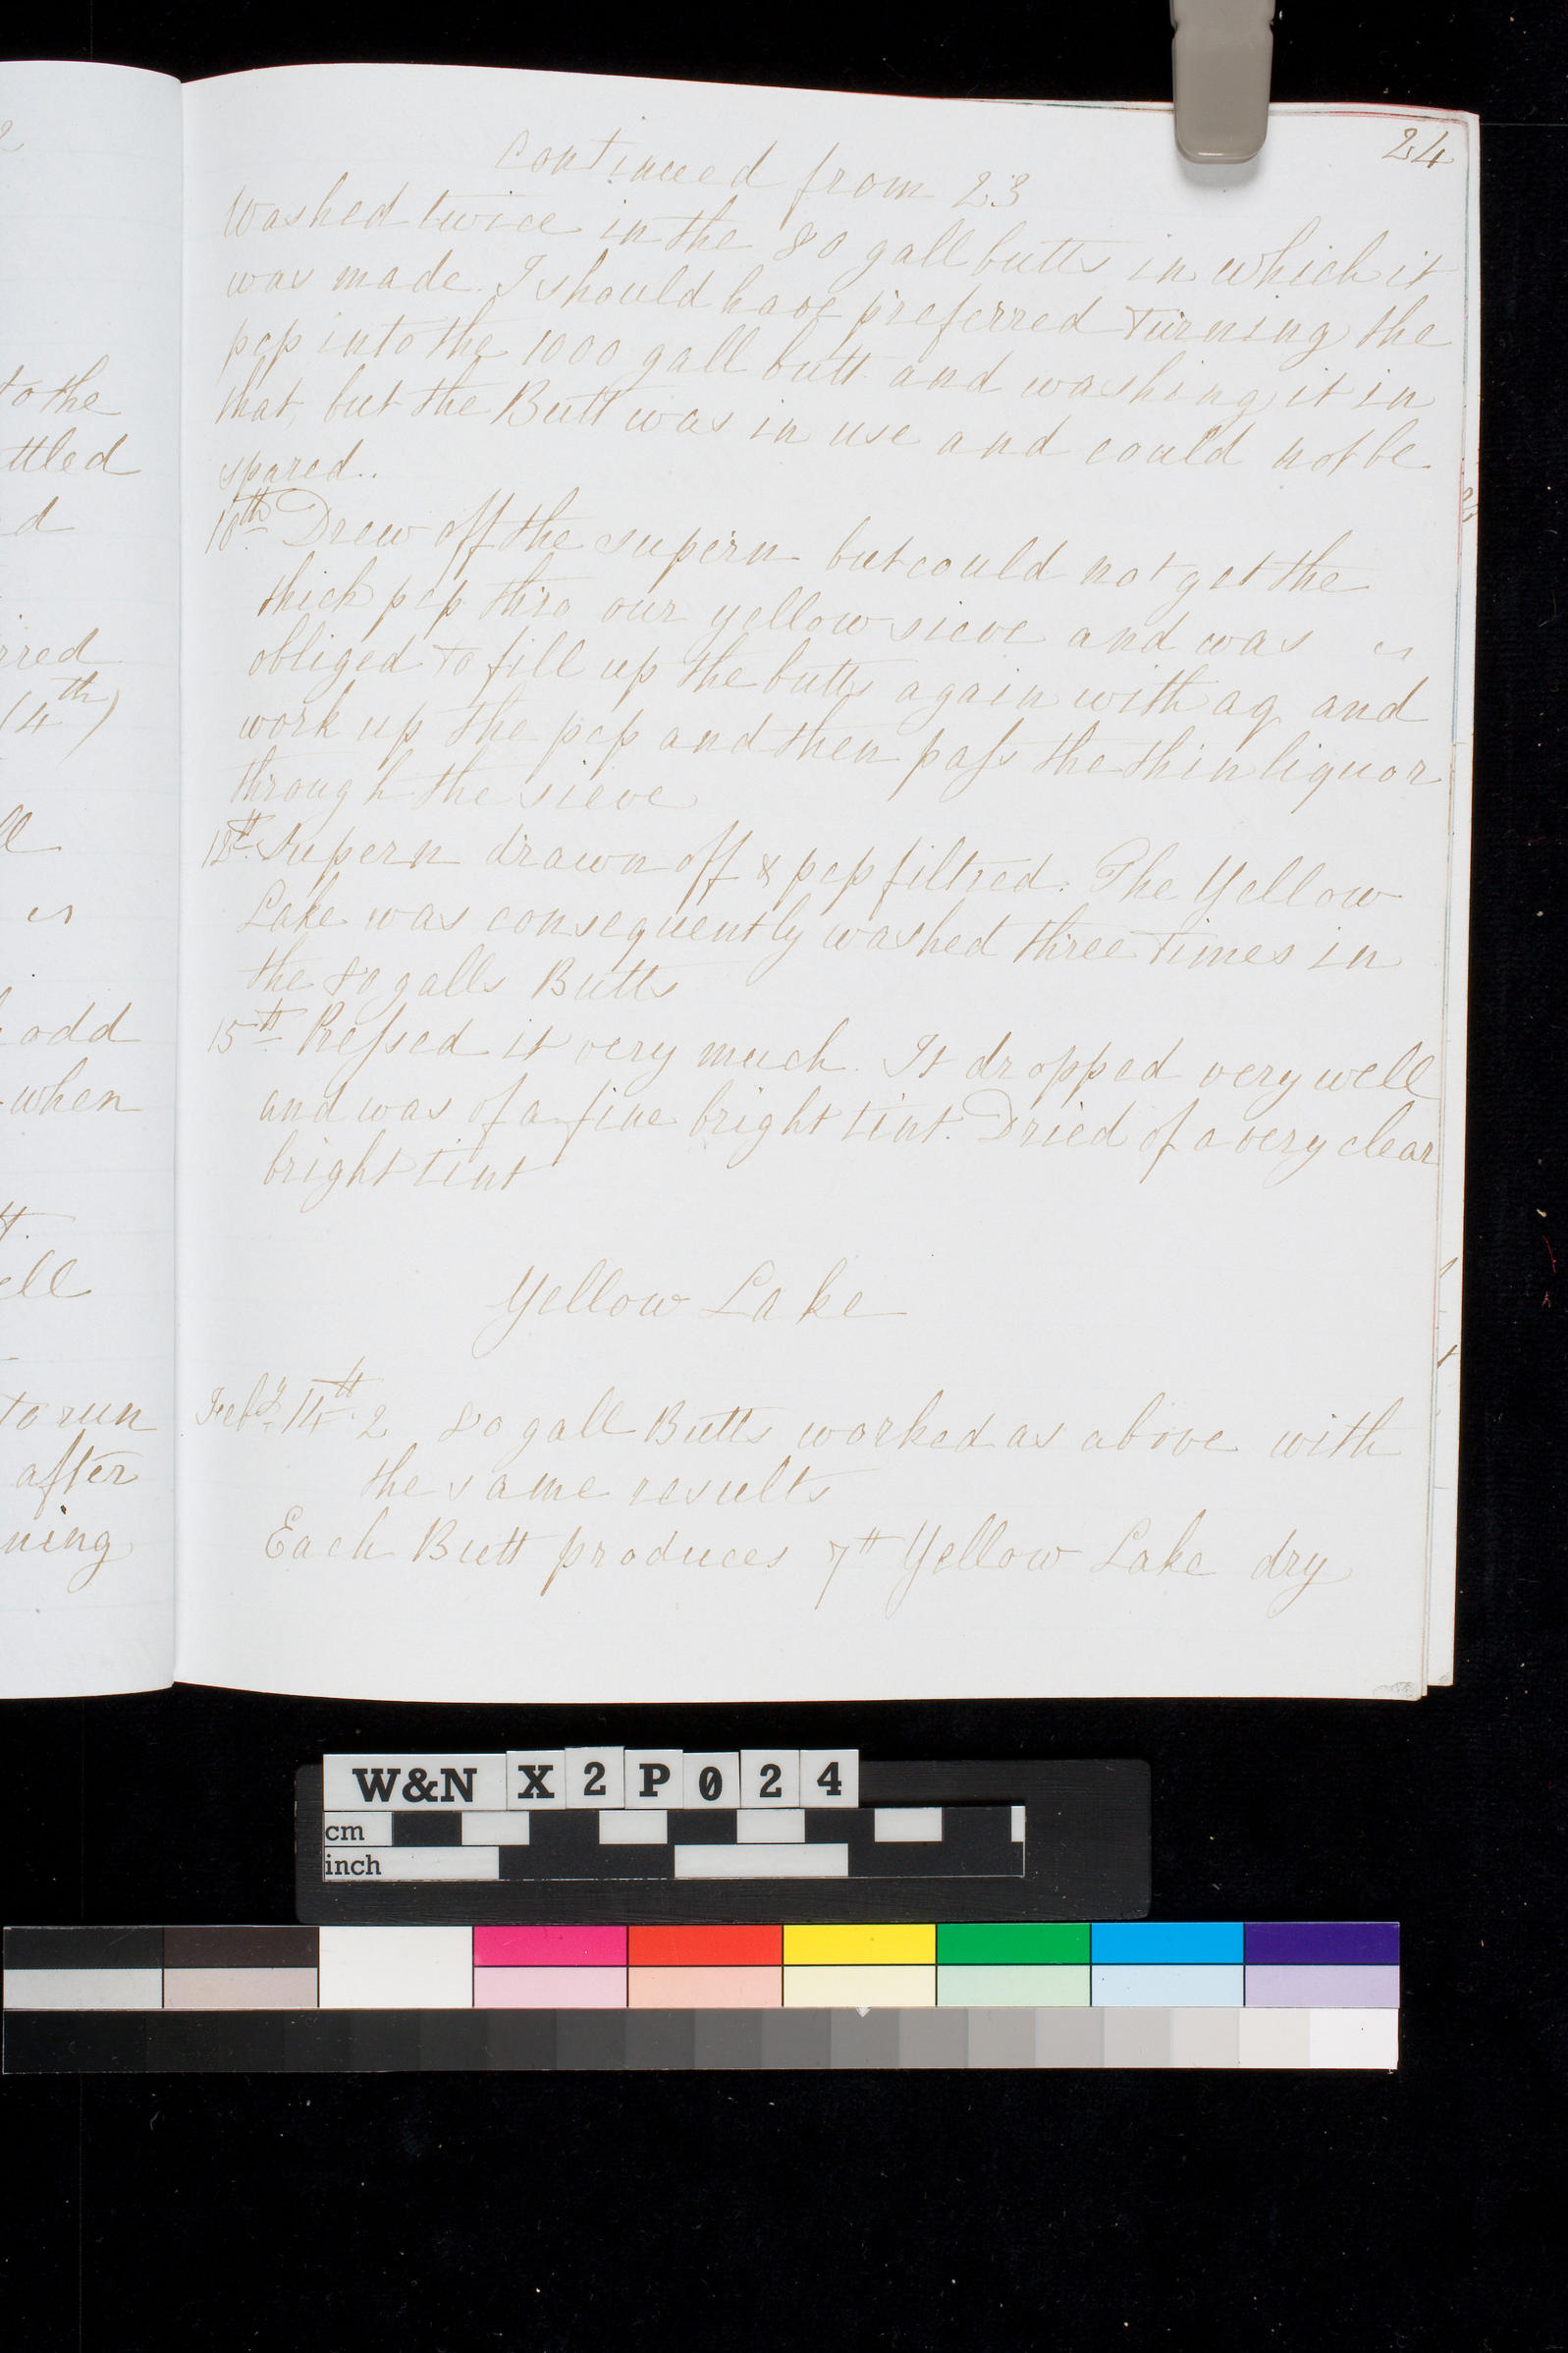 2
to the
ttled
d
rred
(4th)
ll
odd
when
ell
to run
after
ning
24
continued from 23
Washed twice in the 80 gall butts in which it
was made. I should have preferred turning the
pcp into the 1000 gall butt and washing it in
that, but the Butt was in use and could not be
spared..
10th Drew off the supern but could not get the
thick pcp thro our yellow sieve and was
obliged to fill up the butts again with aq and
work up the pcp and then pass the thin liquor
through the sieve
12th Supern drawn off & pcp filtred. The Yellow
Lake was consequently washed three times in
the 80 galls Butts
15th Pressed it very much. It dropped very well
and was of a fine bright tint. Dried of a very clear
bright tint
Yellow Lake
Feby 14th 2 80 gall Butts worked as above with
the same results
Each Butt produces 7 Yellow Lake dry
W&N X2P024
cm
inch